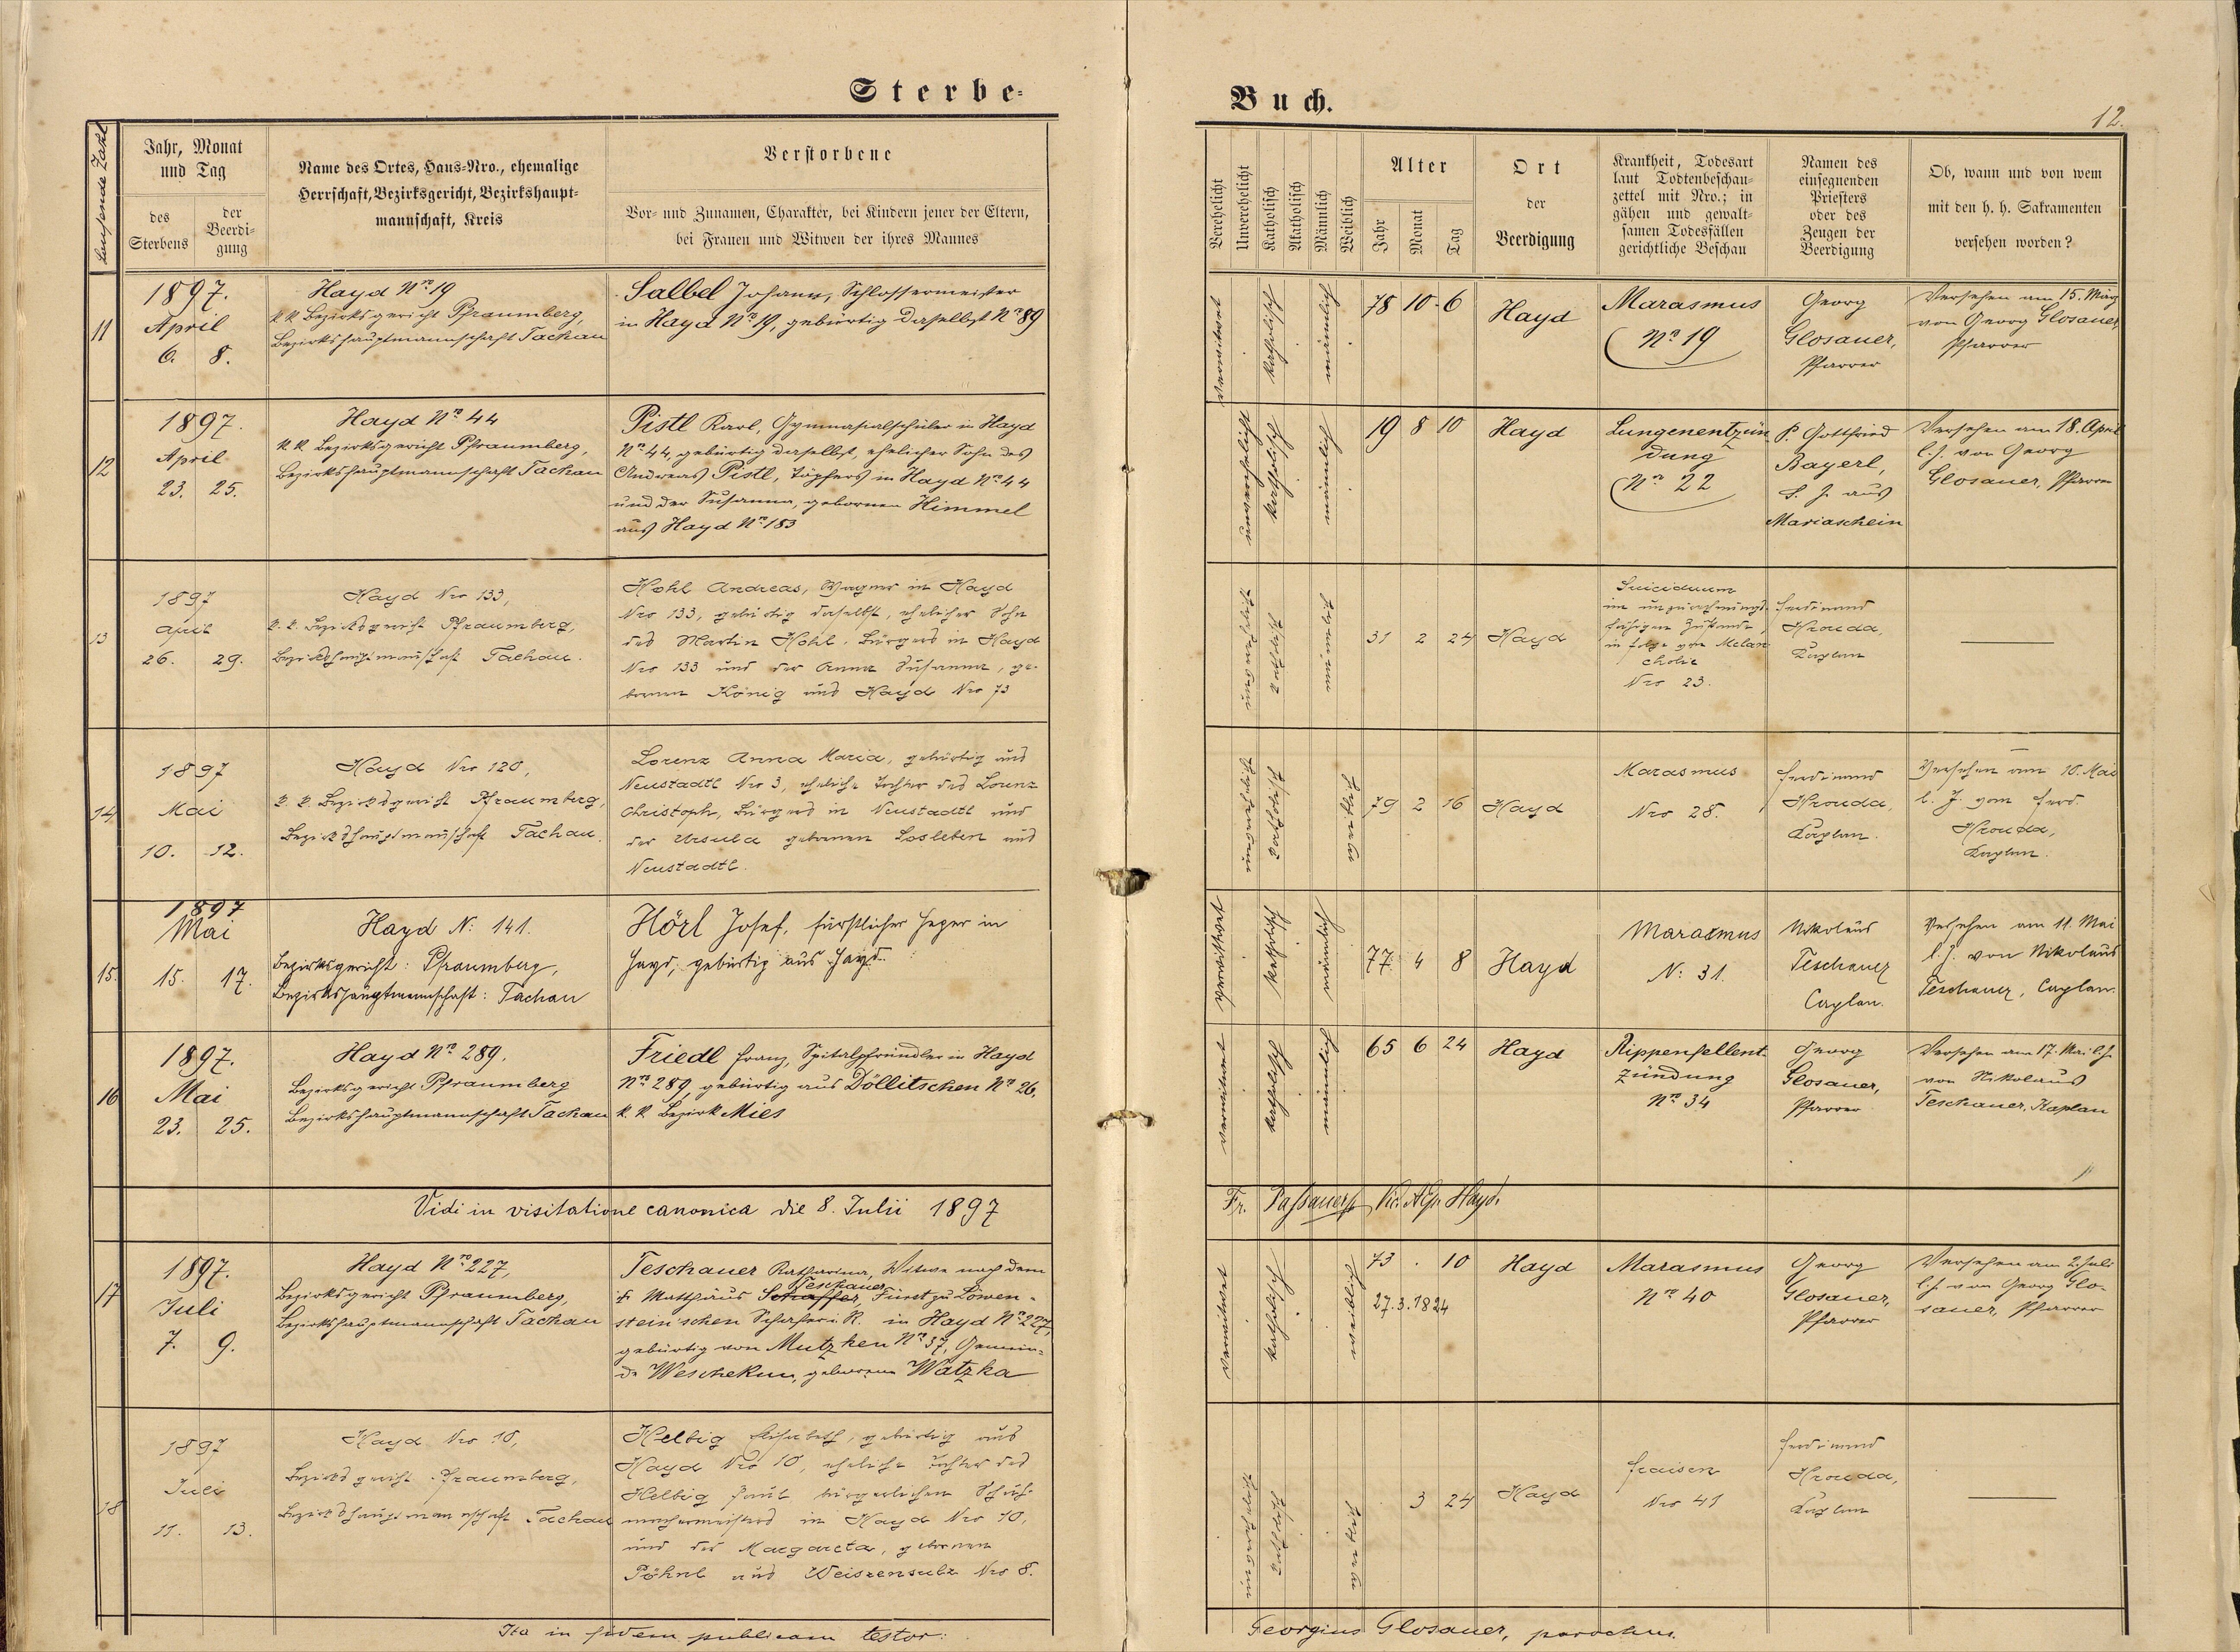 Sterbe-
Buch.
12.
Laufende Zahl
Jahr, Monat
und Tag
des
Sterbens
der
Beerdi-
gung
Name des Ortes, Haus-Nro., ehemalige
Herrschaft, Bezirksgericht, Bezirkshaupt-
mannschaft, Kreis
Verstorbene
Vor- und Zunamen, Charakter, bei Kindern jener der Eltern,
bei Frauen und Witwen der ihres Mannes
Verehelicht
Unverehelicht
Katholisch
Akatholisch
Männlich
Weiblich
Alter
Jahr
Monat
Tag
Ort
der
Beerdigung
Krankheit, Todesart
laut Todtenbeschau-
zettel mit Nro.; in
gähen und gewalt-
samen Todesfällen
gerichtliche Beschau
Namen des
einsegnenden
Priesters
oder des
Zeugen der
Beerdigung
Ob, wann und von wem
mit den h. h. Sakramenten
versehen worden?
11
1897.
April
6. 8.
Hayd Nro 19
k. k. Bezirksgericht Pfraumberg,
Bezirkshauptmannschaft Tachau
Salbel Johann, Schlossermeister
in Hayd Nro 19, gebürtig daselbst Nro 89
verwitwet
katholisch
männlich
78 10 6
Hayd
Marasmus
Nro 19
Georg
Glosauer,
Pfarrer
Versehen am 15. März
von Georg Glosauer
Pfarrer
12
1897.
April
23. 25.
Hayd Nro 44
k. k. Bezirksgericht Pfraumberg,
Bezirkshauptmannschaft Tachau
Pistl Karl, Gymnasialschüler in Hayd
Nro 44, gebürtig daselbst, ehelicher Sohn des
Andreas Pistl, Töpfers in Hayd Nro 44
und der Susanna, gebornen Himmel
aus Hayd Nro 153
unverehelicht
katholisch
männlich
19 8 10
Hayd
Lungenentzün
dung
Nro 22
P. Gottfried
Bayerl,
S. J. aus
Mariaschein
Versehen am 18. April
l. J. von Georg
Glosauer, Pfarrer
13
1897
April
26. 29.
Hayd Nro 133,
k. k. Bezirksgericht Pfraumberg,
Bezirkshauptmannschaft Tachau.
Hohl Andreas, Wagner in Hayd
Nro 133, gebürtig daselbst, ehelicher Sohn
des Martin Hohl, Bürgers in Hayd
Nro 133 und der Anna Susanna, ge-
bornen König aus Hayd Nro 73
unverehelicht
katholisch
männlich
31 2 24
Hayd
Suicidium
im unzurechnungs-
fähigen Zustande,
in Folge von Melan
cholie
Nro 23.
Ferdinand
Hrouda,
Kaplan
14
1897
Mai
10. 12.
Hayd Nro 120,
k. k. Bezirksgericht Pfraumberg,
Bezirkshauptmannschaft Tachau.
Lorenz Anna Maria, gebürtig aus
Neustadtl Nro 3, eheliche Tochter des Lorenz
Christoph, Bürgers in Neustadtl und
der Ursula gebornen Losleben aus
Neustadtl.
unverehelicht
katholisch
weiblich
79 2 16
Hayd
Marasmus
Nro 28.
Ferdinand
Hrouda,
Kaplan.
Versehen am 10. Mai
l. J. vom Ferd.
Hrouda,
Kaplan.
15.
1897
Mai
15. 17.
Hayd N: 141.
Bezirksgericht: Pfraumberg,
Bezirkshauptmannschaft: Tachau
Hörl Josef, fürstlicher Heger in
Hayd, gebürtig aus Hayd.
verwittwet
katholisch
männlich
77 4 8
Hayd
Marasmus
N: 31.
Nikolaus
Teschauer
Caplan.
Versehen am 11. Mai
l. J. von Nikolaus
Teschauer, Caplan.
16
1897.
Mai
23. 25.
Hayd Nro 289.
Bezirksgericht Pfraumberg
Bezirkshauptmannschaft Tachau
Friedl Franz, Spitalpfründler in Hayd
Nro 289, gebürtig aus Döllitschen Nro 26,
k. k. Bezirk Mies
verwitwet
katholisch
männlich
65 6 24
Hayd
Rippenfellent-
zündung
Nro 34
Georg
Glosauer,
Pfarrer
Versehen am 17. Mai l. J.
von Nikolaus
Teschauer, Kaplan
Vidi in visitatione canonica die 8. Julii 1897
Fr. Hayd.
17
1897.
Juli
7. 9.
Hayd Nro 227,
Bezirksgericht Pfraumberg,
Bezirkshauptmannschaft Tachau
Teschauer Katharina, Witwe nach dem
Teschauer
† Matthäus Schaffer, Fürst zu Löwen-
stein'schen Schafer i. R. in Hayd Nro 227,
gebürtig von Mutzken Nro 37, Gemein-
de Weschekun, geborene Watzka
verwitwet
katholisch
weiblich
73 . 10
27.3.1824
Hayd
Marasmus
Nro 40
Georg
Glosauer,
Pfarrer
Versehen am 2. Juli
l. J. von Georg Glo-
sauer, Pfarrer
18
1897
Juli
11. 13.
Hayd Nro 10,
Bezirksgericht Pfraumberg,
Bezirkshauptmannschaft Tachau
Helbig Elisabeth, gebürtig aus
Hayd Nro 10, eheliche Tochter des
Helbig Paul bürgerlichen Schuh-
machermeisters in Hayd Nro 10,
und der Margareta, gebornen
Pöhnl aus Weiszensulz Nro 8.
unverehelicht
katholisch
weiblich
3 24
Hayd
Fraisen
Nro 41
Ferdinand
Hrouda,
Kaplan
Ita in fidem publicam testor:
Georgius Glosauer, parochus.